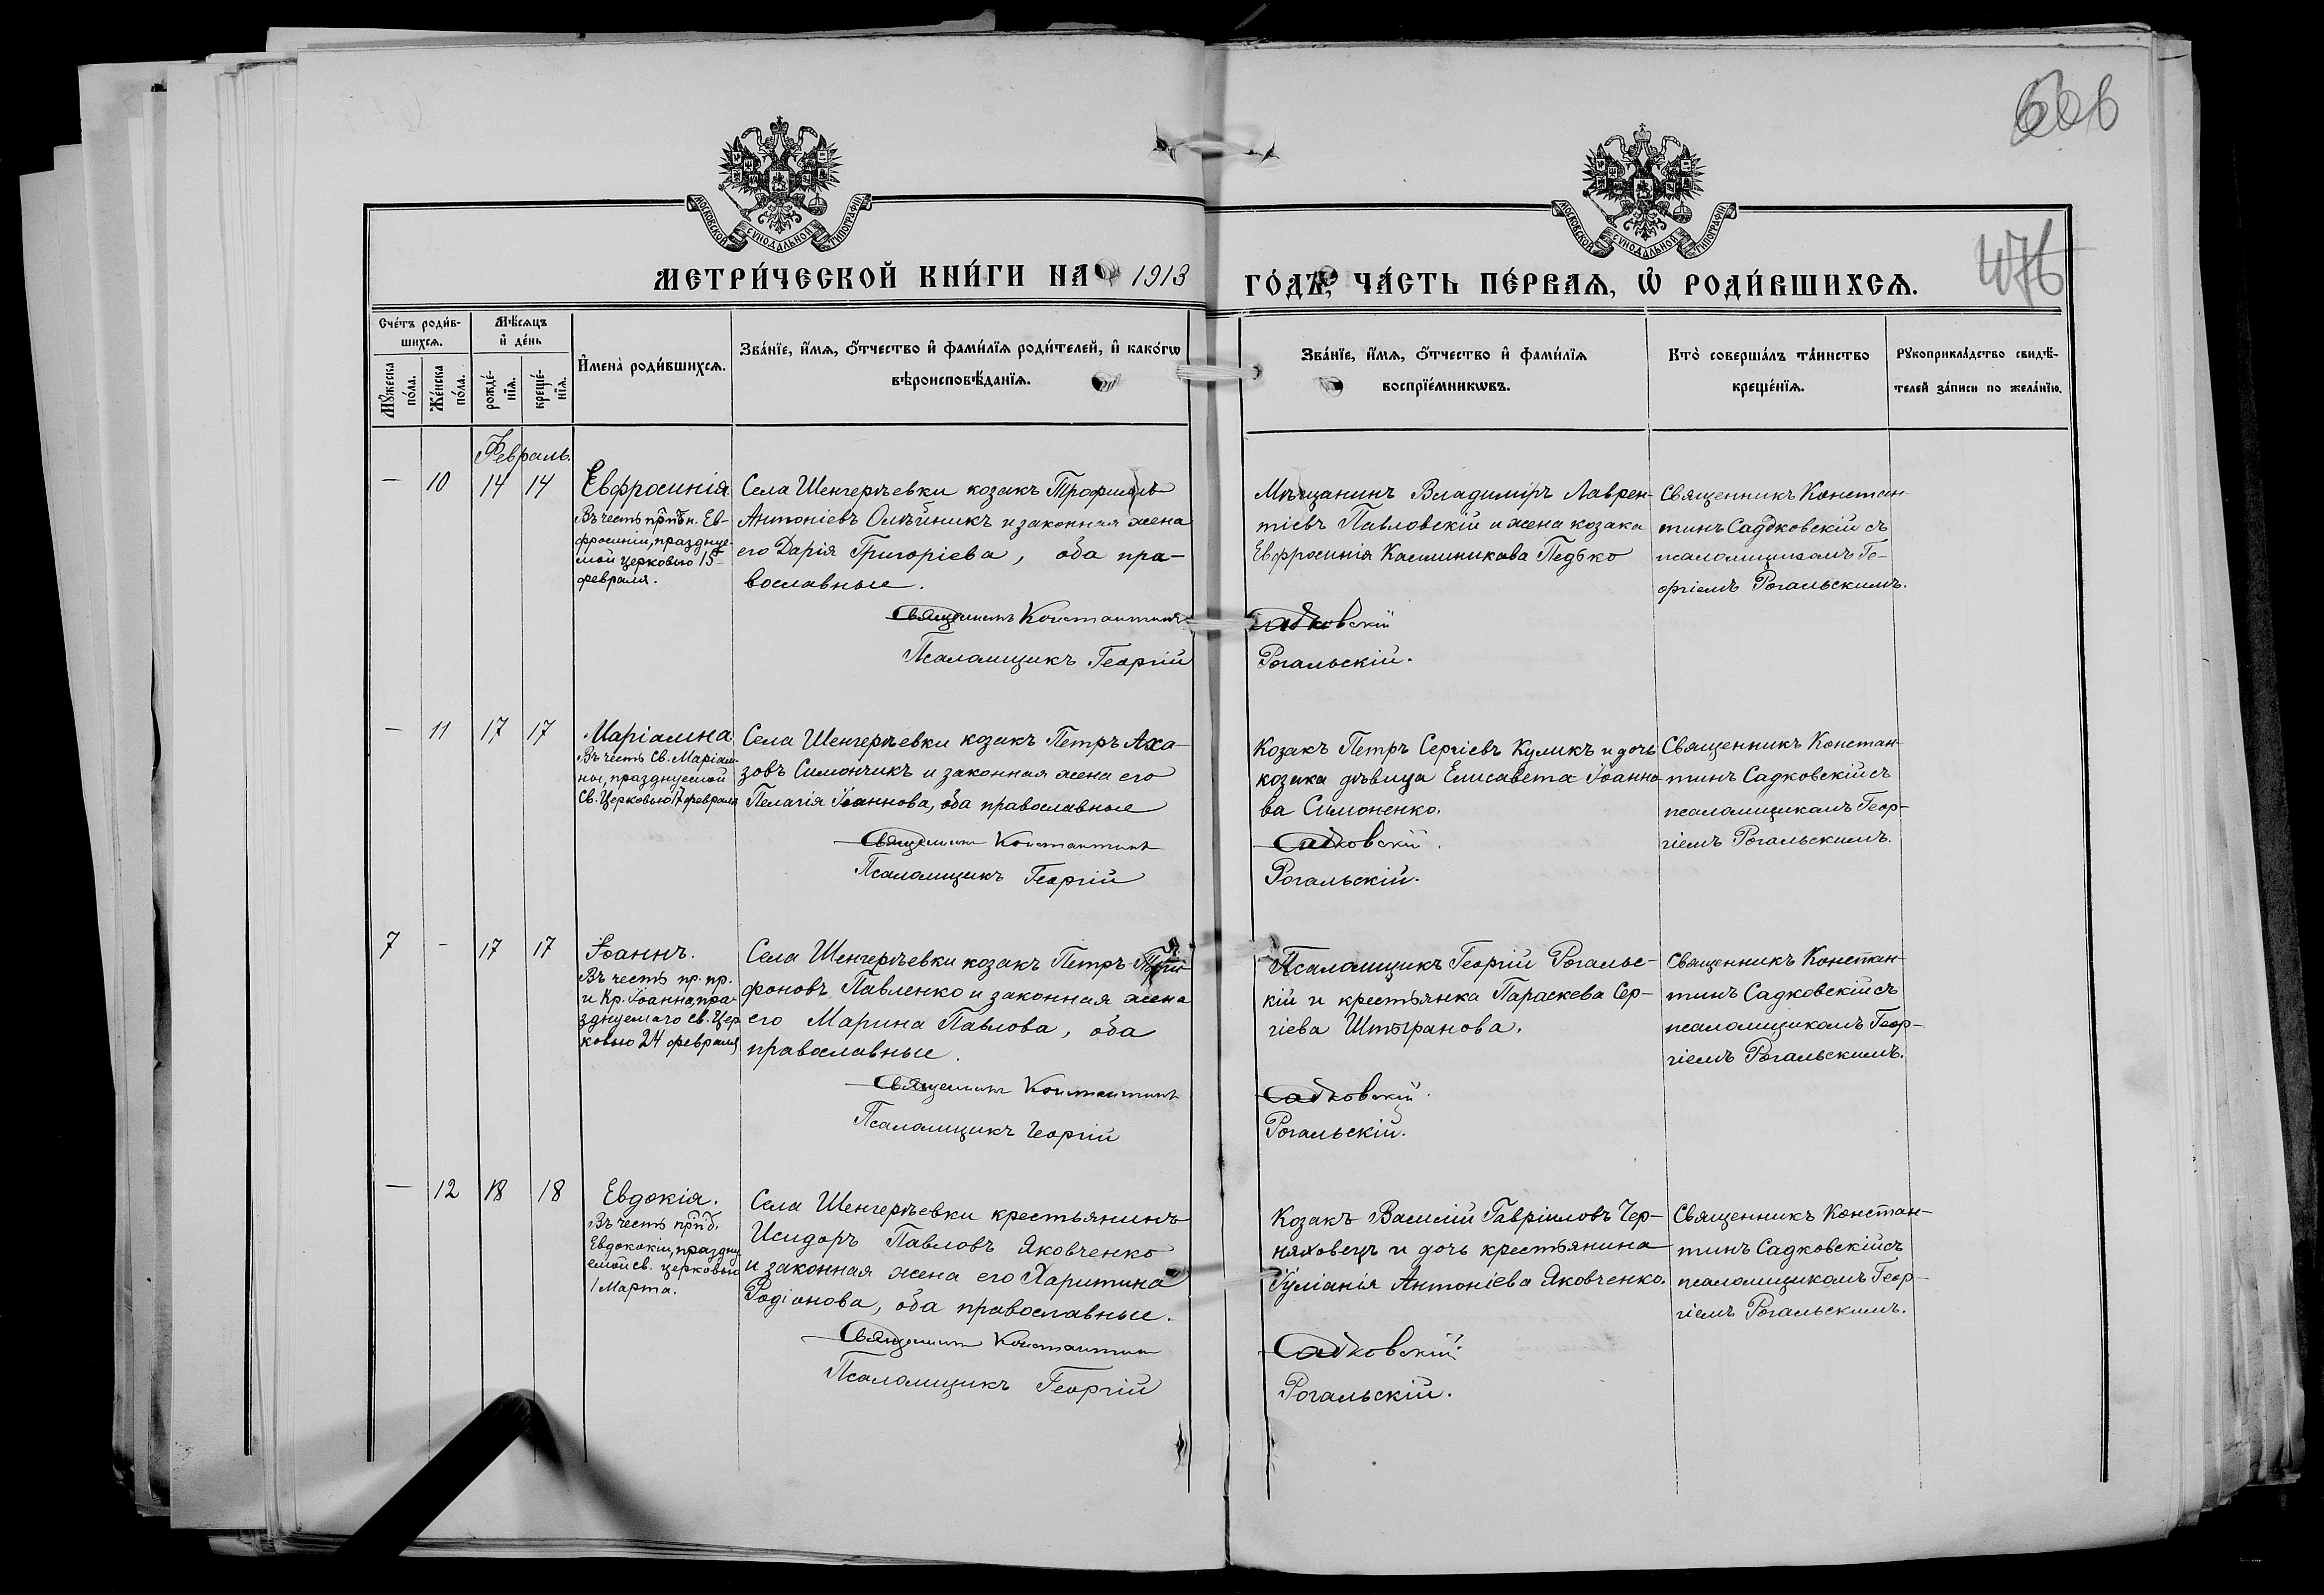 606
МОСКОВСКОЙ СУНОДАЛЬНОЙ ТИПОГРАФІИ
МОСКОВСКОЙ СУНОДАЛЬНОЙ ТИПОГРАФІИ
476
МЕТРИ́ЧЕСКОЙ КНИ́ГИ НА 1913
ГО́ДЪ, ЧА́СТЬ ПЕ́РВАѦ, Ѡ҆ РОДИ́ВШИХСѦ.
Сче́тъ роди́в-
шихсѧ.
Мꙋ́жеска
по́ла.
Же́нска
по́ла.
Мѣ́сѧцъ
и҆ де́нь
рожде́-
нїѧ.
креще́-
нїѧ.
И҆мена̀ роди́вшихсѧ.
Зва́нїе, и҆́мѧ, ѻ҆́тчество и҆ фами́лїѧ роди́телей, и҆ како́гѡ
вѣроисповѣ́данїѧ.
Зва́нїе, и҆́мѧ, ѻ҆́тчество и҆ фами́лїѧ
воспрїе́мникѡвъ.
Кто̀ соверша́лъ та́инство
креще́нїѧ.
Рꙋкоприкла́дство свидѣ́-
телей за́писи по жела́нїю.
Февраль.
— 10 14 14
Евфросинія.
Въ честь прпбн. Ев-
фросиніи, празднуе-
мой церковью 15
февраля.
Села Шенгерѣевки козакъ Трофимъ
Антоніевъ Олѣйникъ и законная жена
его Дарія Григоріева, оба пра-
вославные.
Священникъ Константинъ
Псаломщикъ Георгій
Мѣщанинъ Владиміръ Лаврен-
тіевъ Павловскій и жена козака
Евфросинія Калиникова Педько
Садковскій
Рогальскій.
Священникъ Констан-
тинъ Садковскій съ
псаломщикомъ Ге-
оргіемъ Рогальскимъ.
— 11 17 17
Маріамна
Въ честь Св. Маріам-
ны, празднуемой
Св. Церковью 17 февраля
Села Шенгерѣевки козакъ Петръ Аха-
зовъ Симончикъ и законная жена его
Пелагія Іоаннова, оба православные
Священникъ Константинъ
Псаломщикъ Георгій
Козакъ Петръ Сергіевъ Куликъ и дочь
козака дѣвица Елисавета Іоанно-
ва Симоненко.
Садковскій.
Рогальскій.
Священникъ Констан-
тинъ Садковскій съ
псаломщикомъ Геор-
гіемъ Рогальскимъ.
7 - 17 17
Іоаннъ.
Въ честь пр. пр.
и Кр. Іоанна, пра-
зднуемаго св. Цер
ковью 24 февраля
Села Шенгерѣевки козакъ Петръ
фоновъ Павленко и законная жена
его Марина Павлова, оба
православные.
Священникъ Константинъ
Псаломщикъ Георгій
Псаломщикъ Георгій Рогальс-
кій и крестьянка Параскева Сер-
гіева Штогранова.
Садковскій.
Рогальскій.
Священникъ Констан-
тинъ Садковскій съ
псаломщикомъ Геор-
гіемъ Рогальскимъ.
— 12 18 18
Евдокія.
Въ честь прпб.
Евдококіи, праздну
емой св. церковью
1 Марта.
Села Шенгерѣевки крестьянинъ
Исидоръ Павловъ Яковченко
и законная жена его Харитина
Родіонова, оба православные.
Священникъ Константинъ
Псаломщикъ Георгій
Козакъ Василій Гавріиловъ Чер-
няховецъ и дочь крестьянина
Іуліанія Антоніева Яковченко.
Садковскій.
Рогальскій.
Священникъ Констан-
тинъ Садковскій съ
псаломщикомъ Геор-
гіемъ Рогальскимъ.